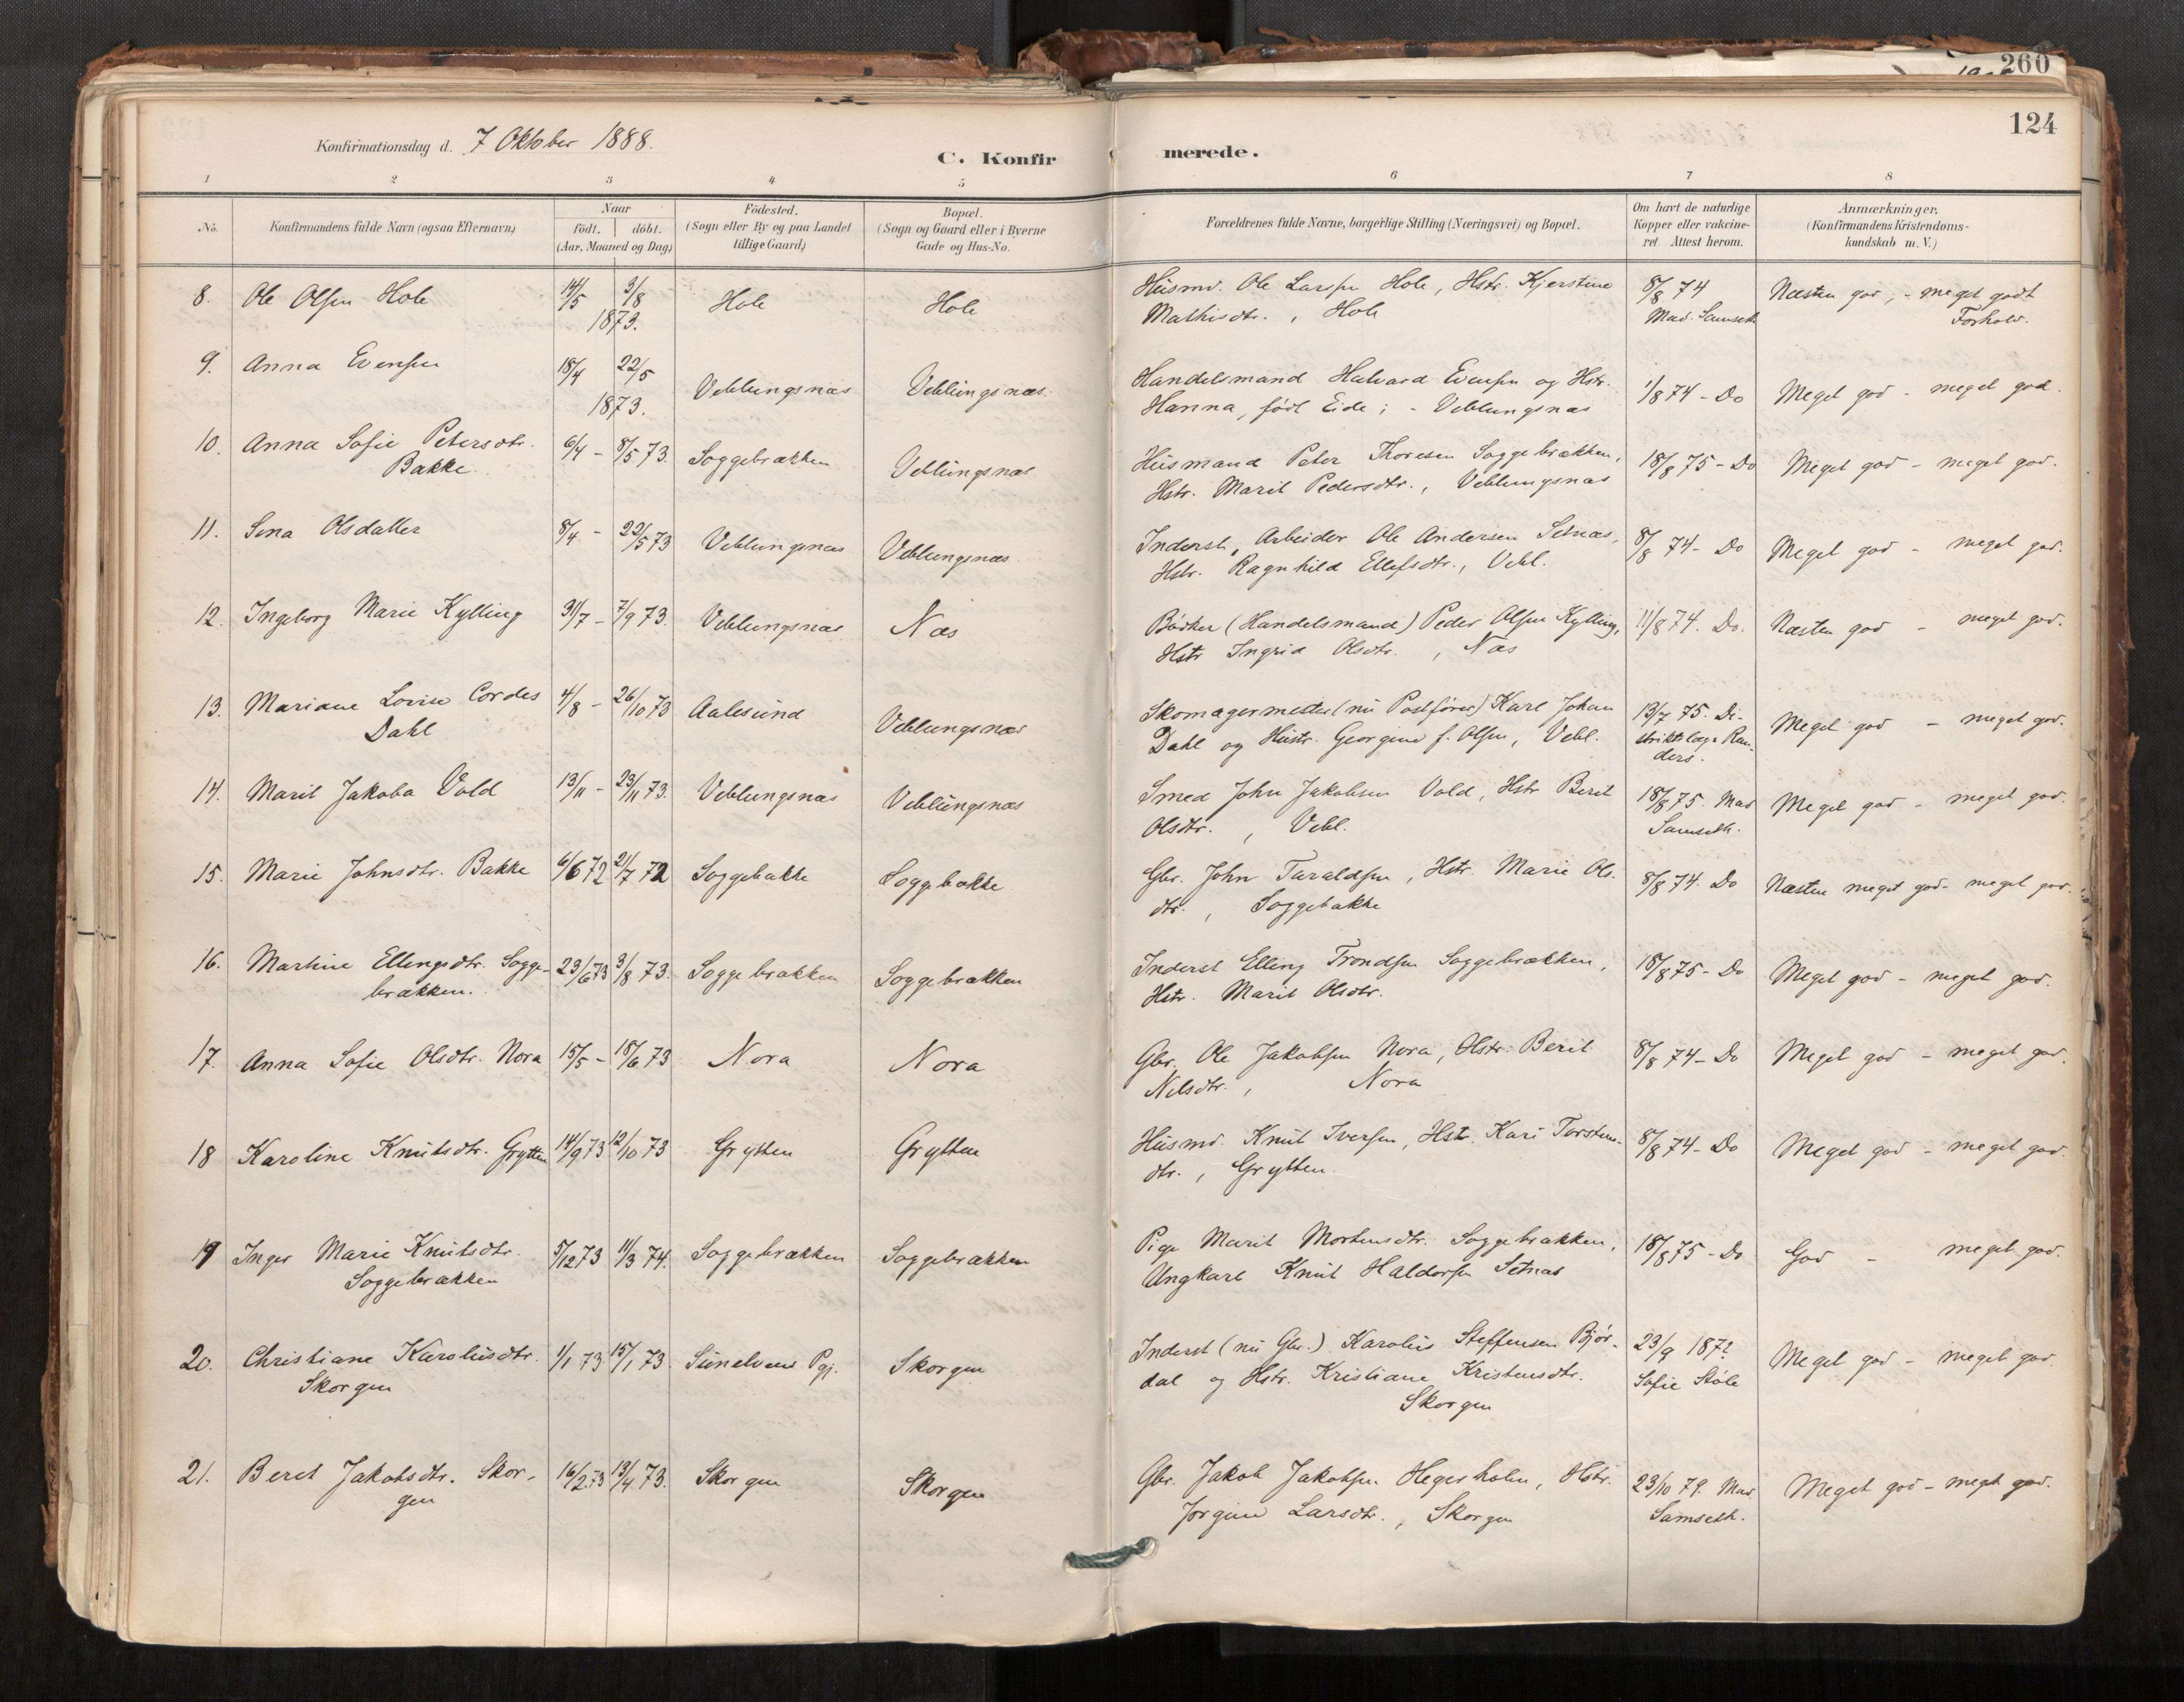 260
124
Konfirmationsdag d. 7 Oktober 1888.
C. Konfir merede.
1 2 3 4 5 6 7 8
No.
Konfirmandens fulde Navn (ogsaa Efternavn)
Naar
födt. döbt.
(Aar, Maaned og Dag)
Födested.
(Sogn eller By og paa Landet
tillige Gaard)
Bopæl.
(Sogn og Gaard eller i Byerne
Gade og Hus-No.
Forældrenes fulde Navne, borgerlige Stilling (Næringsvei) og Bopæl.
Om havt de naturlige
Kopper eller vakcine-
ret Attest herom.
Anmærkninger,
(Konfirmandens Kristendoms-
kundskab m. V.)
8. Ole Olsen Hole 14/5 3/8 1873. Hole Hole Husmd. Ole Larssen Hole, Hstr. Kjerstine
Mathisdtr., Hole 8/8 74 Mad. Samseth Næsten god, - meget godt
Forhold.
9. Anna Evensen 18/4 22/5 1873. Veblungsnæs Veblungsnæs. Handelsmand Halvard Evensen og Hstr.
Hanna, født Eide; - Veblungsnæs 1/8 74 - Do Meget god - meget god.
10. Anna Sofie Petersdtr.
Bakke 6/4 - 8/5 73. Soggebrækken Veblungsnæs Husmand Peter Thoresen Soggebrækken,
Hstr. Marit Pedersdtr., Veblungsnæs 18/8 75 - Do Meget god - meget god.
11. Sina Olsdatter 8/4 - 22/5 73 Veblungsnæs Veblungsnæs Inderst, Arbeider Ole Andersen Setnæs,
Hstr. Ragnhild Ellefsdtr., Vebl. 8/8 74 - Do Meget god - meget god.
12. Ingeborg Marie Kylling 31/7 - 7/9 73. Veblungsnæs Næs Bødker (Handelsmand) Peder Olsen Kylling,
Hstr Ingrid Olsdtr., Næs 11/8 74. Do. Næsten god - meget god.
13. Mariane Lovise Cordes
Dahl 4/8 - 26/10 73 Aalesund Veblungsnæs Skomagermester (nu Postfører) Karl Johan
Dahl og Hustr. Georgine f. Olsen, Vebl. 13/7 75. Di-
striktslæge Ran-
ders. Meget god - meget god.
14. Marit Jakoba Vold 13/11 - 23/11 73. Veblungsnæs Veblungsnæs Smed John Jakobsen Vold, Hstr Berit
Olsdtr., Vebl. 18/8 75. Mad
Samseth. Meget god - meget god.
15. Marie Johnsdtr. Bakke 6/6 72 21/7 72 Soggebakke Soggebakke Gbr. John Taraldsen, Hstr. Marie Ols-
dtr., Soggebakke 8/8 74. Do Næsten meget god - meget god.
16. Martine Ellingsdtr. Sogge-
brækken. 23/6 73 3/8 73. Soggebrækken Soggebrækken Inderst Elling Trondsen Soggebrækken,
Hstr. Marit Olsdtr. 18/8 75 - Do Meget god - meget god.
17. Anna Sofie Olsdtr. Nora 15/5 - 18/6 73 Nora Nora Gbr. Ole Jakobsen Nora, Hstr. Berit
Nilsdtr., Nora 8/8 74 - Do Meget god - meget god.
18 Karoline Knutsdtr. Grytten 14/9 73 12/10 73 Grytten Grytten Husmd. Knut Iversen, Hstr. Kari Torstens-
dtr., Grytten. 8/8 74 - Do Meget god - meget god.
19 Inger Marie Knutsdtr.
Soggebrækken 5/12 73 11/3 74. Soggebrækken Soggebrækken Pige Marit Mortensdtr. Soggebrækken,
Ungkarl Knut Haldorsen Setnæs 18/8 75 - Do God - meget god.
20. Christiane Karolusdtr.
Skorgen 1/1 73 15/1 73. Sunelvens Pgj. Skorgen Inderst (nu Gbr.) Karolus Steffensen Bjør-
dal og Hstr. Kristiane Kristensdtr.
Skorgen 23/9 187?
Sofie Støle Meget god - meget god
21. Beret Jakobsdtr. Skor-
gen 16/2 73 13/4 73. Skorgen Skorgen Gbr. Jakob Jakobsen Hegerholm, Hstr.
Jørgine Larsdtr., Skorgen 23/10 79. Mad.
Samseth. Meget god - meget god.